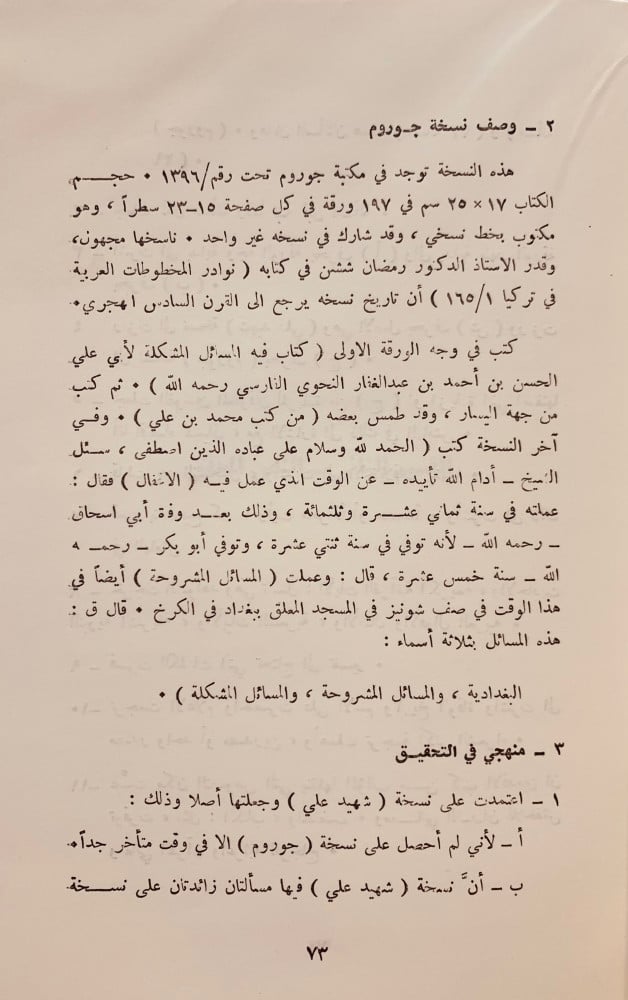 ٢ ـ وصف نسخة جـوروم
هذه النسخة توجد في مكتبة جوروم تحت رقم/١٣٩٦ ٠ حجـــم
الكتاب ١٧ × ٢٥ سم في ١٩٧ ورقة في كل صفحة ١٥ـ٢٣ سطراً ، وهو
مكتوب بخط نسخي ، وقد شارك في نسخه غير واحد ٠ ناسخها مجهول،
وقدر الاستاذ الدكتور رمضان ششن في كتابه ( نوادر المخطوطات العربية
في تركيا ١٦٥/١ ) أن تاريخ نسخه يرجع الى القرن السادس الهجري٠
كتب في وجه الورقة الاولى ( كتاب فيه المسائل المشكلة لأبي علي
الحسن بن أحمد بن عبدالغفار النحوي الفارسي رحمه الله ) ٠ ثم كتب
من جهة اليسار ، وقد طمس بعضه ( من كتب محمد بن علي ) ٠ وفــي
آخر النسخة كتب ( الحمد لله وسلام على عباده الذين اصطفى ، سـئل
الشيخ ـ أدام الله تأييده ـ عن الوقت الذي عمل فيـه ( الاغفال ) فقال :
عملته في سنة ثماني عشـرة وثلثمائة ، وذلك بعـد وفاة أبي اسحاق
ـ رحمه الله ـ لأنه توفي في سنة ثنتي عشرة ، وتوفي أبو بكر ـ رحمـه
الله ـ سنة خمس عشرة ، قال : وعملت ( المسائل المشروحة ) أيضاً في
هذا الوقت في صف شونيز في المسجد المعلق ببغداد في الكرخ ٠ قال ق :
هذه المسائل بثلاثة أسماء :
البغدادية ، والمسائل المشروحة ، والمسائل المشكلة ) ٠
٣ ـ منهجي في التحقيق
١ ـ اعتمدت على نسخة ( شهيد علي ) وجعلتها أصلا وذلك :
أ ـ لأني لم أحصل على نسخة ( جوروم ) الا في وقت متأخر جداً٠
ب ـ أنَّ نسخة ( شهيد علي ) فيها مسألتان زائدتان على نســخة
٧٣